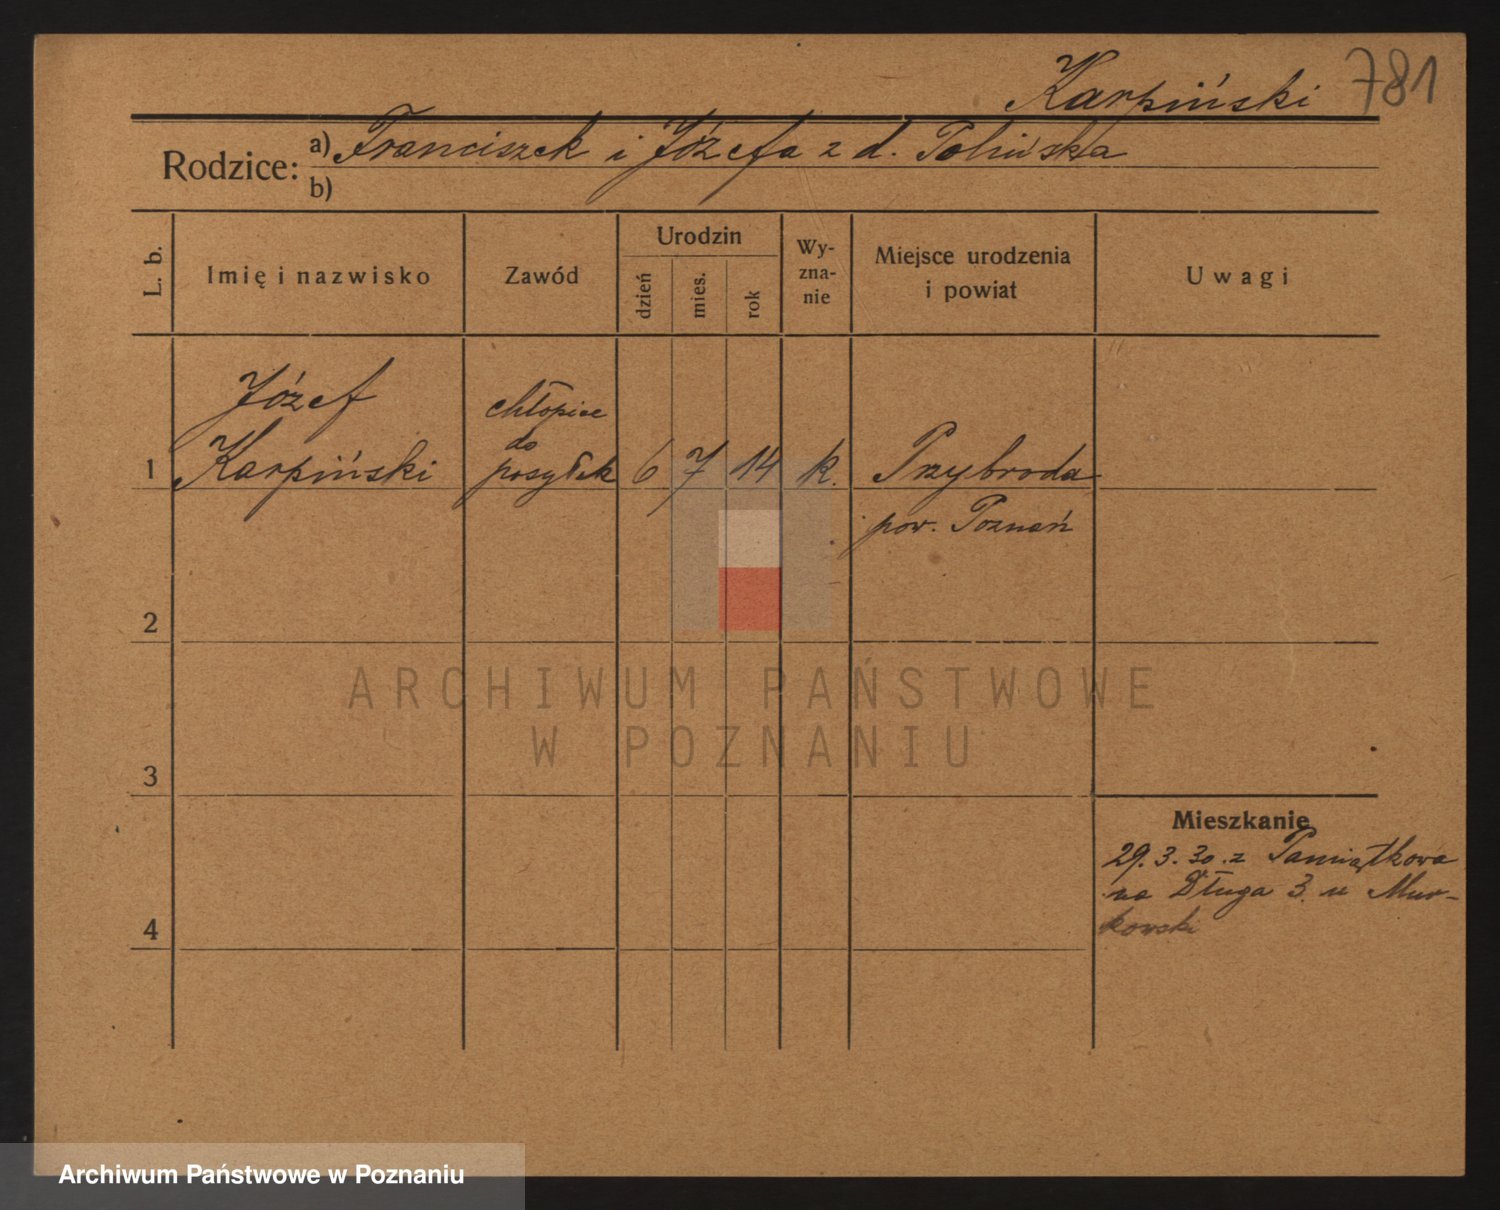 Karpiński 781
Rodzice: a) Franciszek i Józefa z d. Polińska
b)
L. b. Imię i nazwisko Zawód Urodzin dzień mies. rok Wy-zna-nie Miejsce urodzenia i powiat Uwagi
Józef
chłopiec
do
1 Karpiński posyłek 6 7 14 k. Przybroda
pow. Poznań
2
ARCHIWUM PAŃSTWOWE
W POZNANIU
3
Mieszkanie
29. 3. 30. z Pamiątkowa
na Długa 3. u Mur-
kowski
4
Archiwum Państwowe w Poznaniu